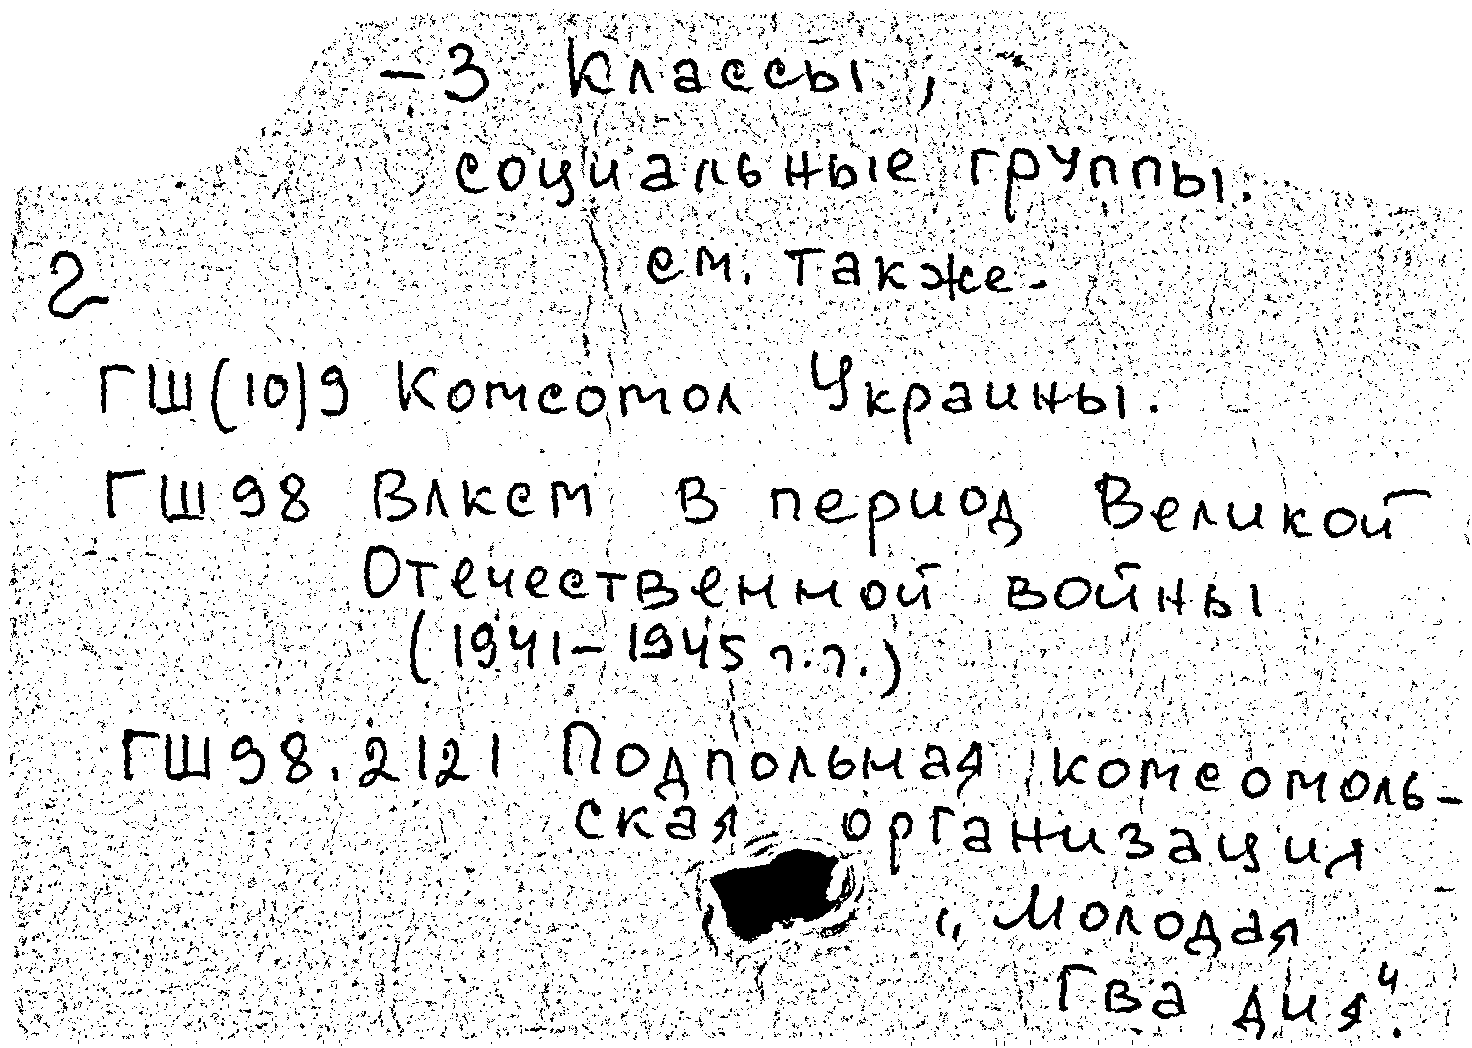 -3 Классы,
социальные группы.
см. также-
2
ГШ(10)9 Комсомол Украины.
ГШ98 Влксм в период Великой
Отечественной войны
(1941-1945 г.г.)
ГШ98.2121 Подпольная комсомоль-
ская организация
„Молодая
Гва дия".